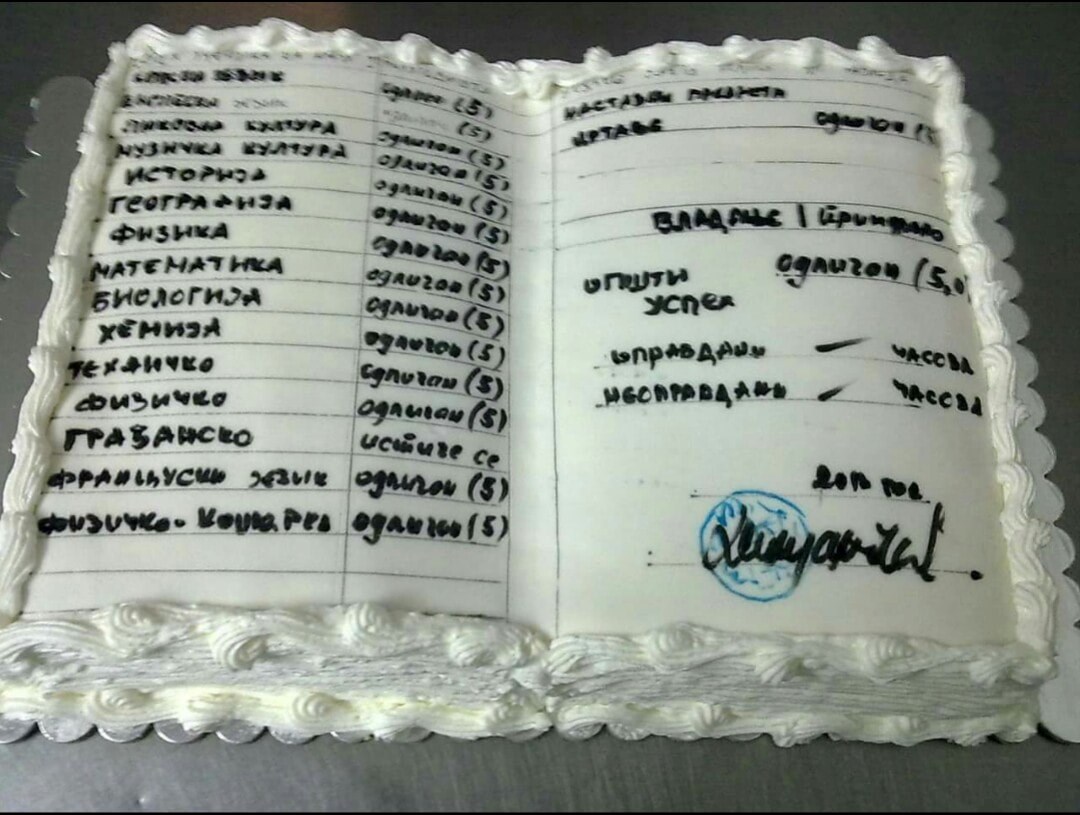 СРПСКИ ЈЕЗИК одличан (5)
ЕНГЛЕСКИ ЈЕЗИК одличан (5)
ЛИКОВНА КУЛТУРА одличан (5)
МУЗИЧКА КУЛТУРА одличан (5)
ИСТОРИЈА одличан (5)
ГЕОГРАФИЈА одличан (5)
ФИЗИКА одличан (5)
МАТЕМАТИКА одличан (5)
БИОЛОГИЈА одличан (5)
ХЕМИЈА одличан (5)
ТЕХНИЧКО одличан (5)
ФИЗИЧКО одличан (5)
ГРАЂАНСКО истиче се
ФРАНЦУСКИ ЈЕЗИК одличан (5)
ФИЗИЧКО- одличан (5)
НАСТАВНИ
ЦРТАЊЕ одличан (5
ВЛАДАЊЕ |
ОПШТИ одличан (5,0
УСПЕХ
ОПРАВДАНИ — ЧАСОВА
НЕОПРАВДАНИ — ЧАСОВА